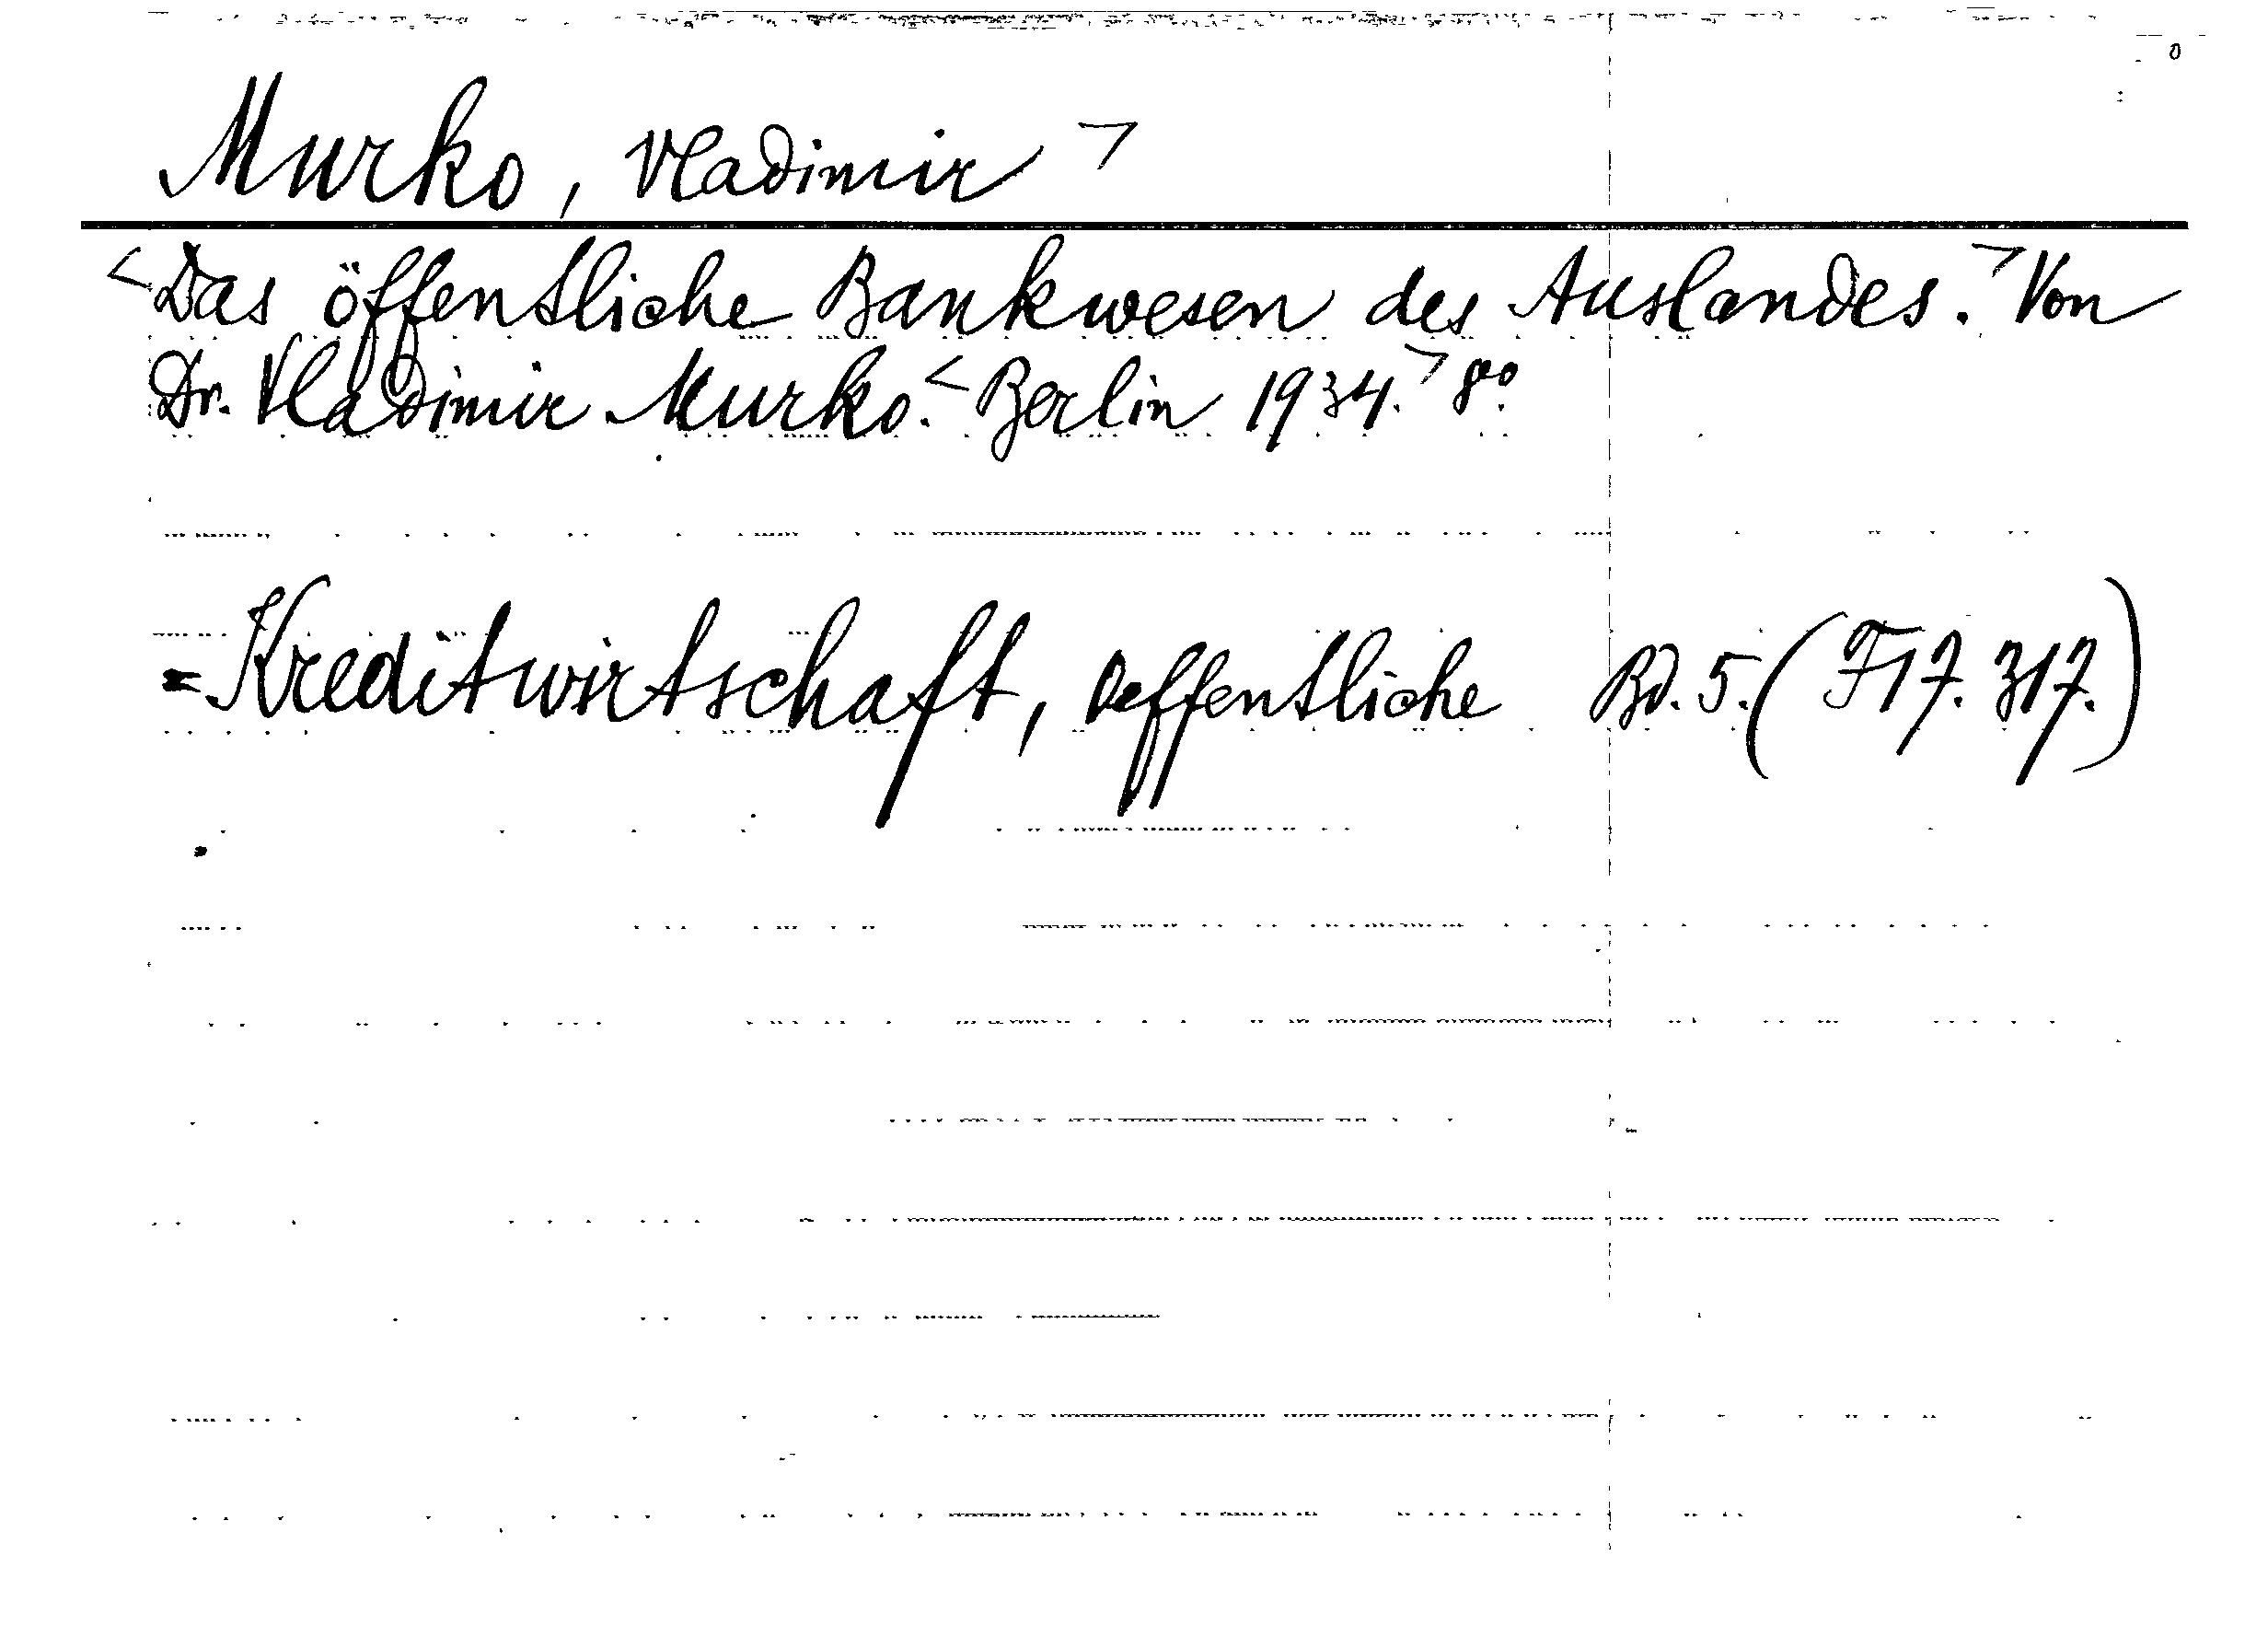 Murko, Vladimir >
< Das öffentliche Bankwesen des Auslandes. > Von
Dr. Vladimir Murko. < Berlin 1934. > 8°.
= Kreditwirtschaft, Oeffentliche Bd. 5. (F17. 317.)